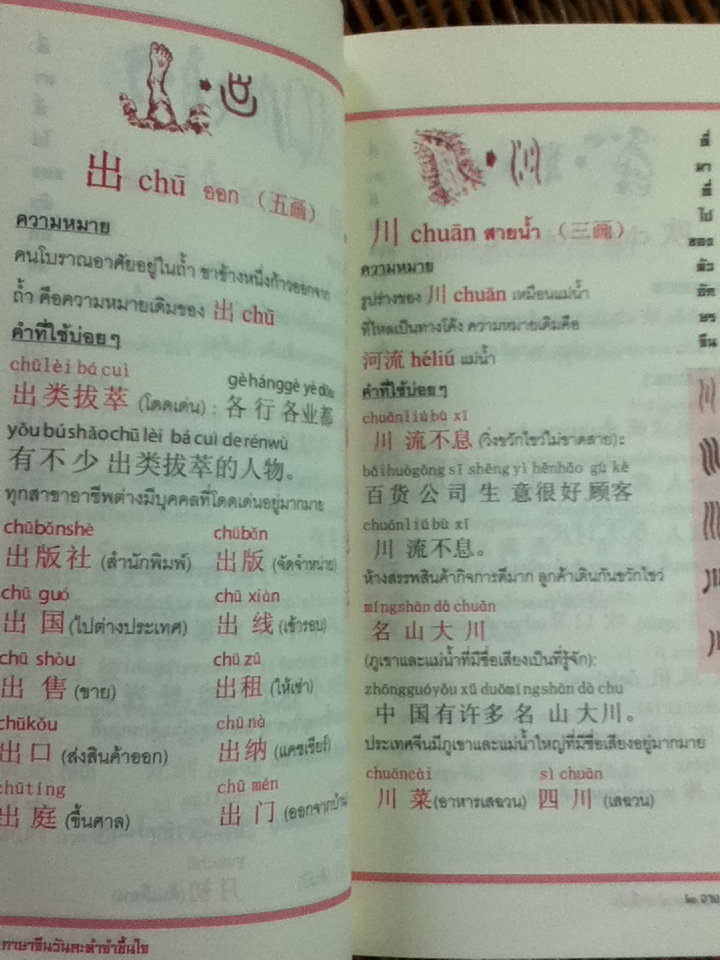 出 chū ออก (五画)
ความหมาย
คนโบราณอาศัยอยู่ในถ้ำ ขาข้างหนึ่งก้าวออกจาก
ถ้ำ คือความหมายเดิมของ 出 chū
คำที่ใช้บ่อยๆ
chūlèi bá cuì
gè hánggè yè dōu
出类拔萃 (โดดเด่น) : 各行各业都
yǒu bú shǎo chū lèi bá cuì de rén wù
有不少出类拔萃的人物。
ทุกสาขาอาชีพต่างมีบุคคลที่โดดเด่นอยู่มากมาย
chūbǎnshè chūbǎn
出版社 (สำนักพิมพ์) 出版 (จัดจำหน่าย)
chū guó chū xiàn
出国 (ไปต่างประเทศ) 出线 (เข้ารอบ)
chū shòu chū zū
出售 (ขาย) 出租 (ให้เช่า)
chūkǒu chū nà
出口 (ส่งสินค้าออก) 出纳 (แคชเชียร์)
chūtíng chū mén
出庭 (ขึ้นศาล) 出门 (ออกจากบ้าน)
ภาษาจีนวันละคำขำขึ้นใจ
川 chuān สายน้ำ (三画)
ความหมาย
รูปร่างของ 川 chuān เหมือนแม่น้ำ
ที่ไหลเป็นทางโค้ง ความหมายเดิมคือ
河流 héliú แม่น้ำ
คำที่ใช้บ่อยๆ
chuān liú bù xī
川流不息 (วิ่งขวักไขว่ไม่ขาดสาย):
bǎi huò gōng sī shēng yì hěn hǎo gù kè
百货公司生意很好,顾客
chuān liú bù xī
川流不息。
ห้างสรรพสินค้ากิจการดีมาก ลูกค้าเดินกันขวักไขว่
míngshān dà chuān
名山大川
(ภูเขาและแม่น้ำที่มีชื่อเสียงเป็นที่รู้จัก):
zhōngguó yǒu xǔ duō míng shān dà chu
中国有许多名山大川。
ประเทศจีนมีภูเขาและแม่น้ำใหญ่ที่มีชื่อเสียงอยู่มากมาย
chuāncài sì chuān
川菜 (อาหารเสฉวน) 四川 (เสฉวน)
ที่
มา
ที่
ไป
ของ
ตัว
อัก
ษร
จีน